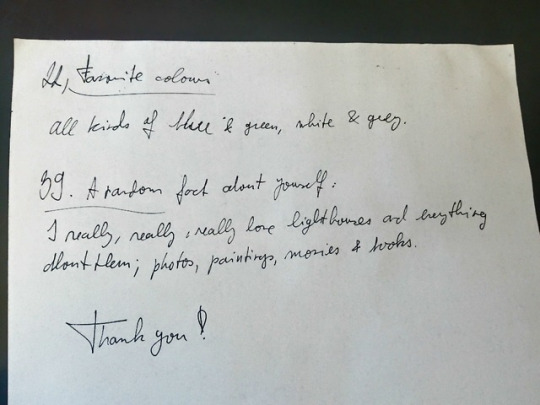 22, Favourite colours
all kinds of blue & green, white & grey.
39. A random fact about yourself:
I really, really, really love lighthouses and everything
about them; photos, paintings, movies & books.
Thank you!